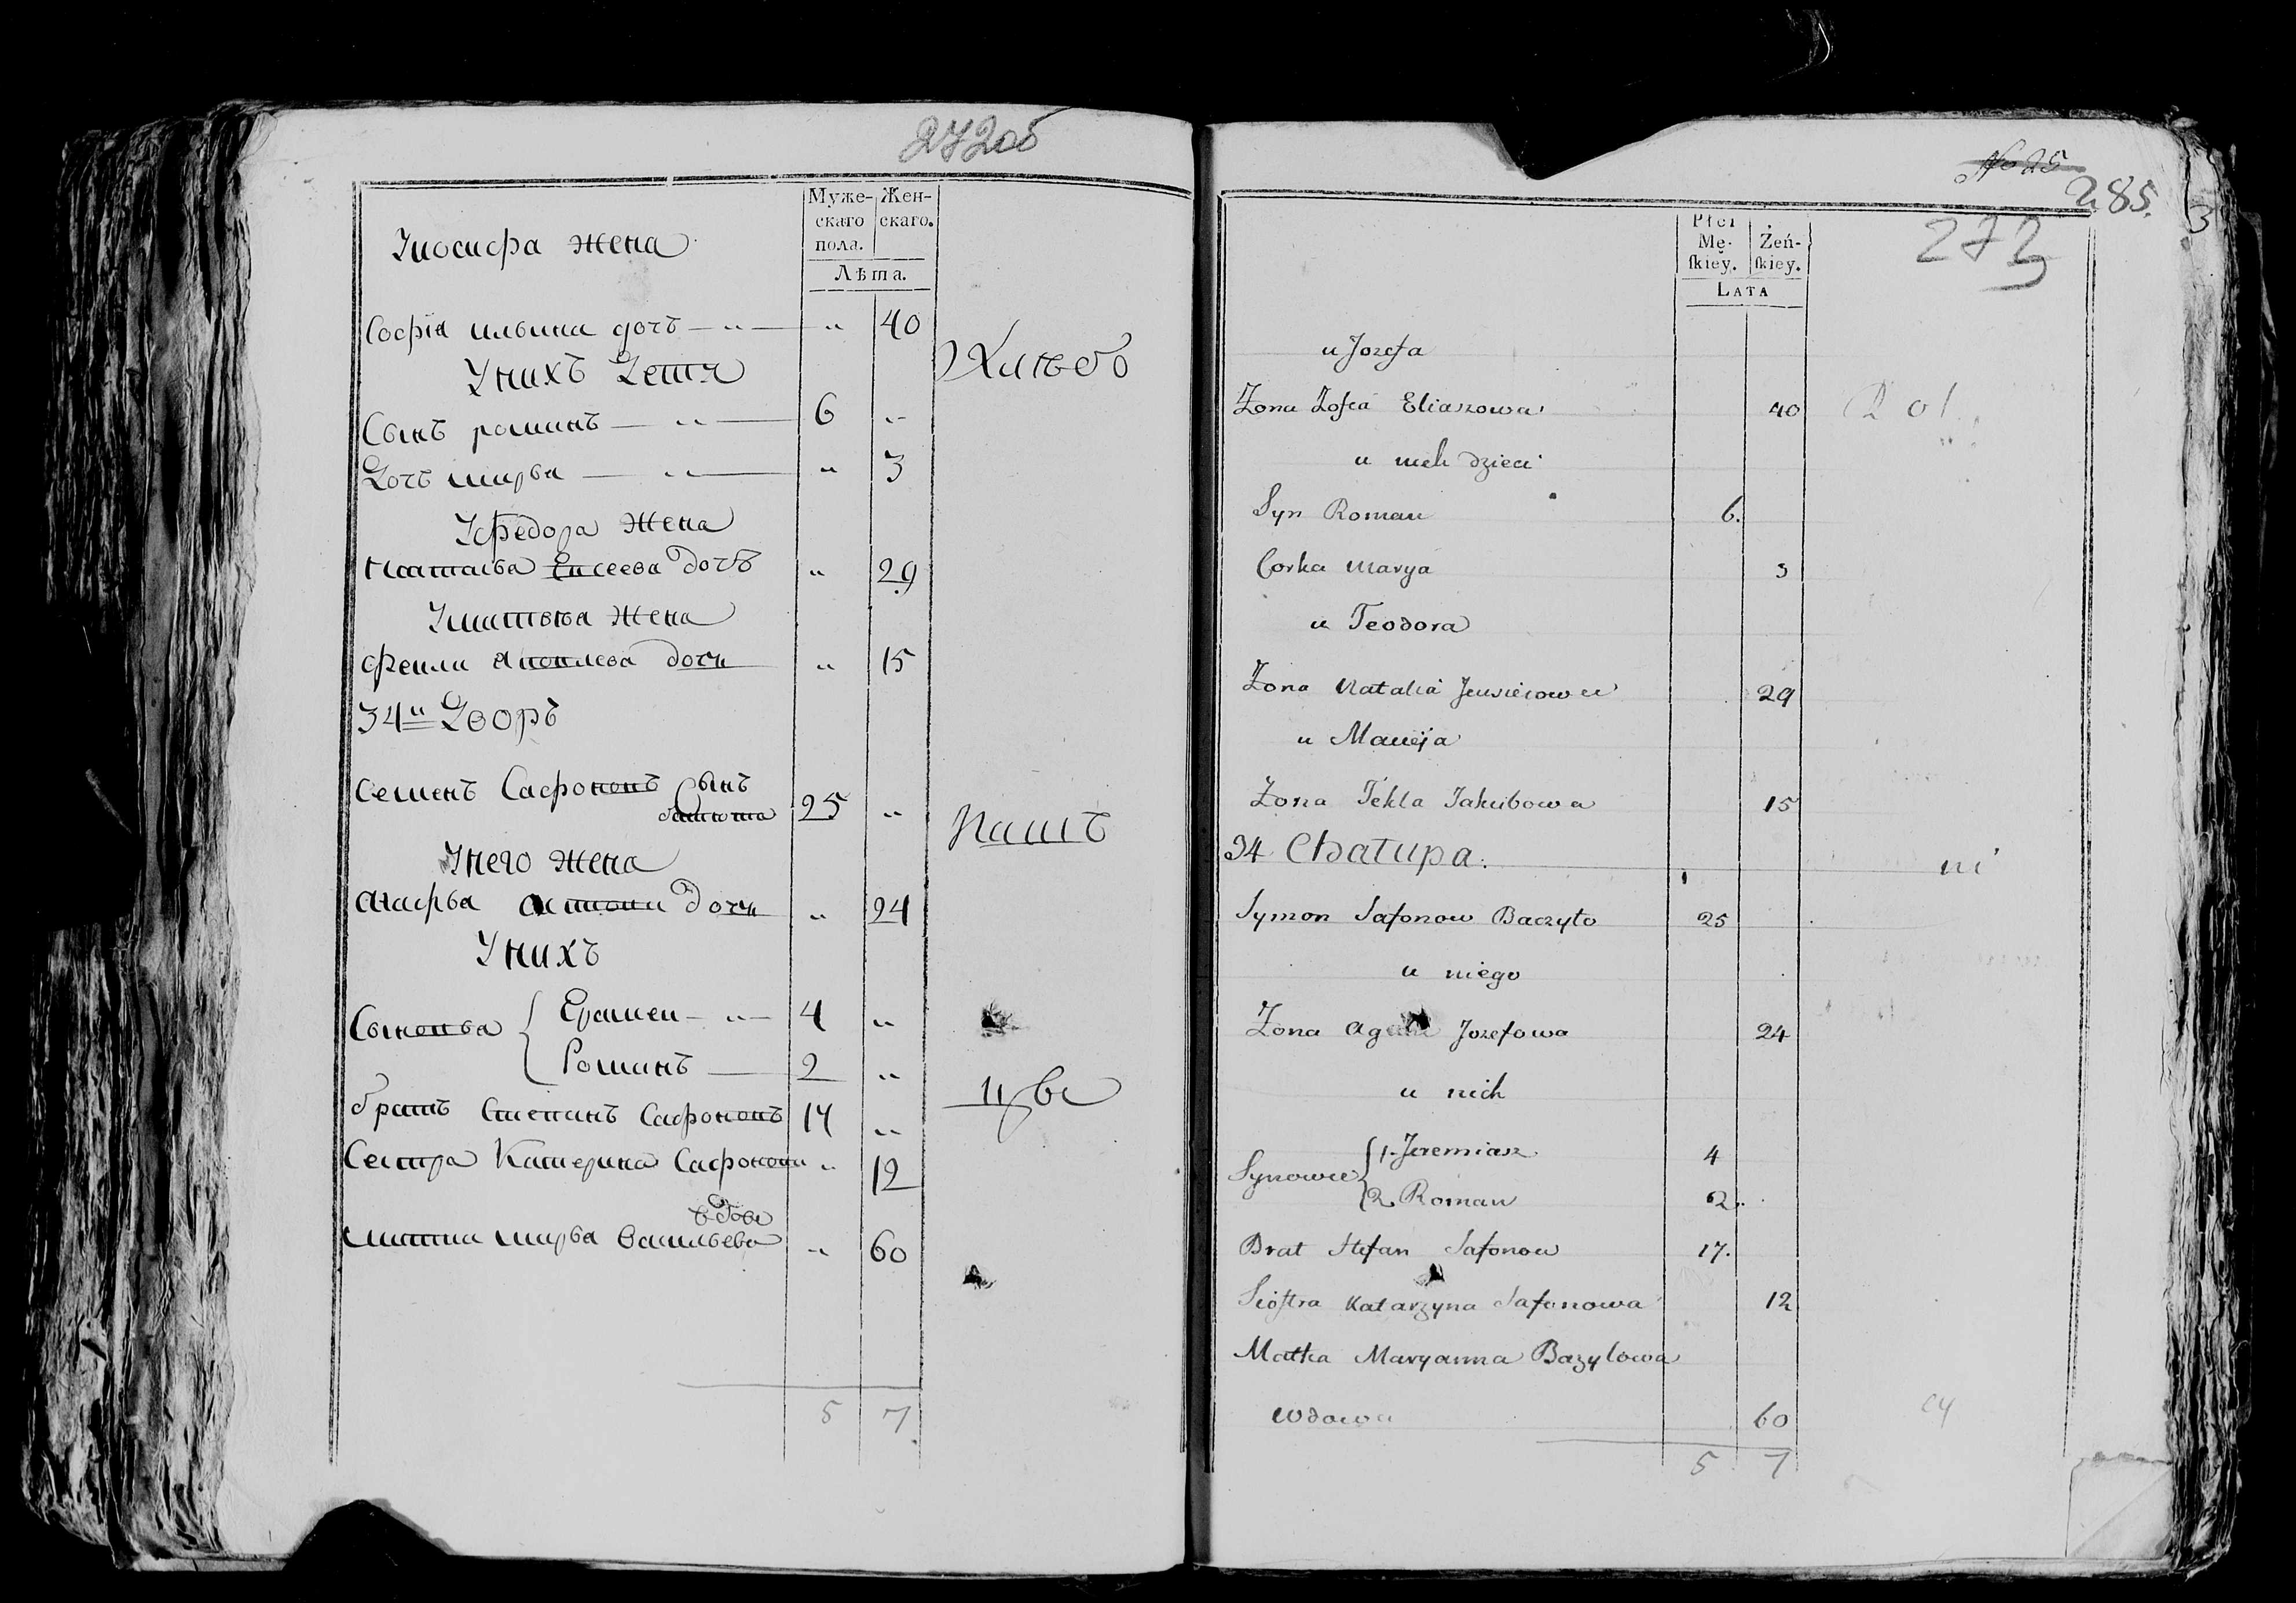 272об
Муже-
скаго
пола.
Жен-
скаго.
Лѣта.
Уиосифа жена
Софiя ильина дочь — „ — „ 40
Унихъ Дети
Сынъ романъ — „ — 6 „
Дочь марья — „ — „ 3
Уфедора жена
наталья Евсеева дочь „ 29
Уматвея жена
фекли Яковлева дочь „ 15
34й Дворъ
Семенъ Сафоновъ Сынъ 25 „
Унего жена
Агафья дочь „ 24
Унихъ
Сыновья { Еремей — „ — 4 „
Романъ — 2 „
братъ Степанъ Сафоновъ 17 „
Сестра Катерина Сафонова „ 12
вдова
матка марья Васильева „ 60
5 7
№ 25
285.
273
Płci
Mę-
ſkiey.
Żeń-
ſkiey.
LATA
u Jozefa
Zona Zofia Eliaszowa 40
u nich dzieci
Syn Roman 6.
Corka Marya 3
u Teodora
Zona Natalia 29
u Macieja
Zona Tekla Jakubowa 15
34 Chałupa.
Symon Safonow Baczyło 25
u niego
Zona Jozefowa 24
u nich
Synowie { 1. Jeremiasz 4
2. Roman 2.
Brat Stefan Safonow 17.
Sioſtra Katarzyna Safonowa 12
Matka Maryanna Bazylowa
wdowa 60
5 7